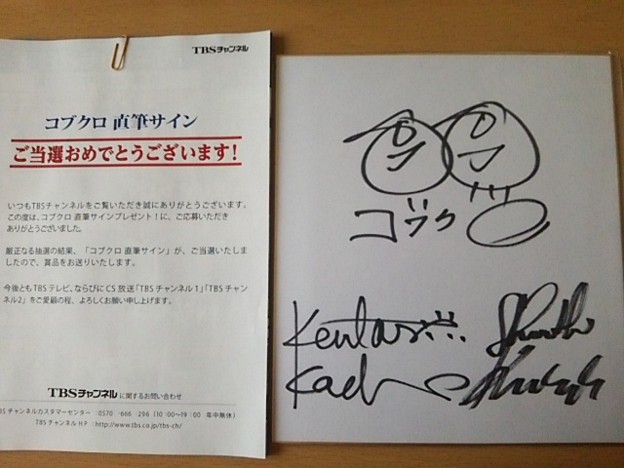 TBSチャンネル
コブクロ 直筆サイン
ご当選おめでとうございます!
いつもTBSチャンネルをご覧いただき誠にありがとうございます。
この度は、コブクロ 直筆サインプレゼント!に、ご応募いただき
ありがとうございました。
厳正なる抽選の結果、「コブクロ 直筆サイン」が、ご当選いたしま
したので、賞品をお送りいたします。
今後ともTBSテレビ、ならびにCS放送「TBSチャンネル1」「TBSチャン
ネル2」をご愛顧の程、よろしくお願い申し上げます。
TBSチャンネルに関するお問い合わせ
BSチャンネルカスタマーセンター 0570-666-296 (10:00〜19:00 年中無休)
TBSチャンネルHP http://www.tbs.co.jp/tbs-ch/
コブクロ
Kentaro